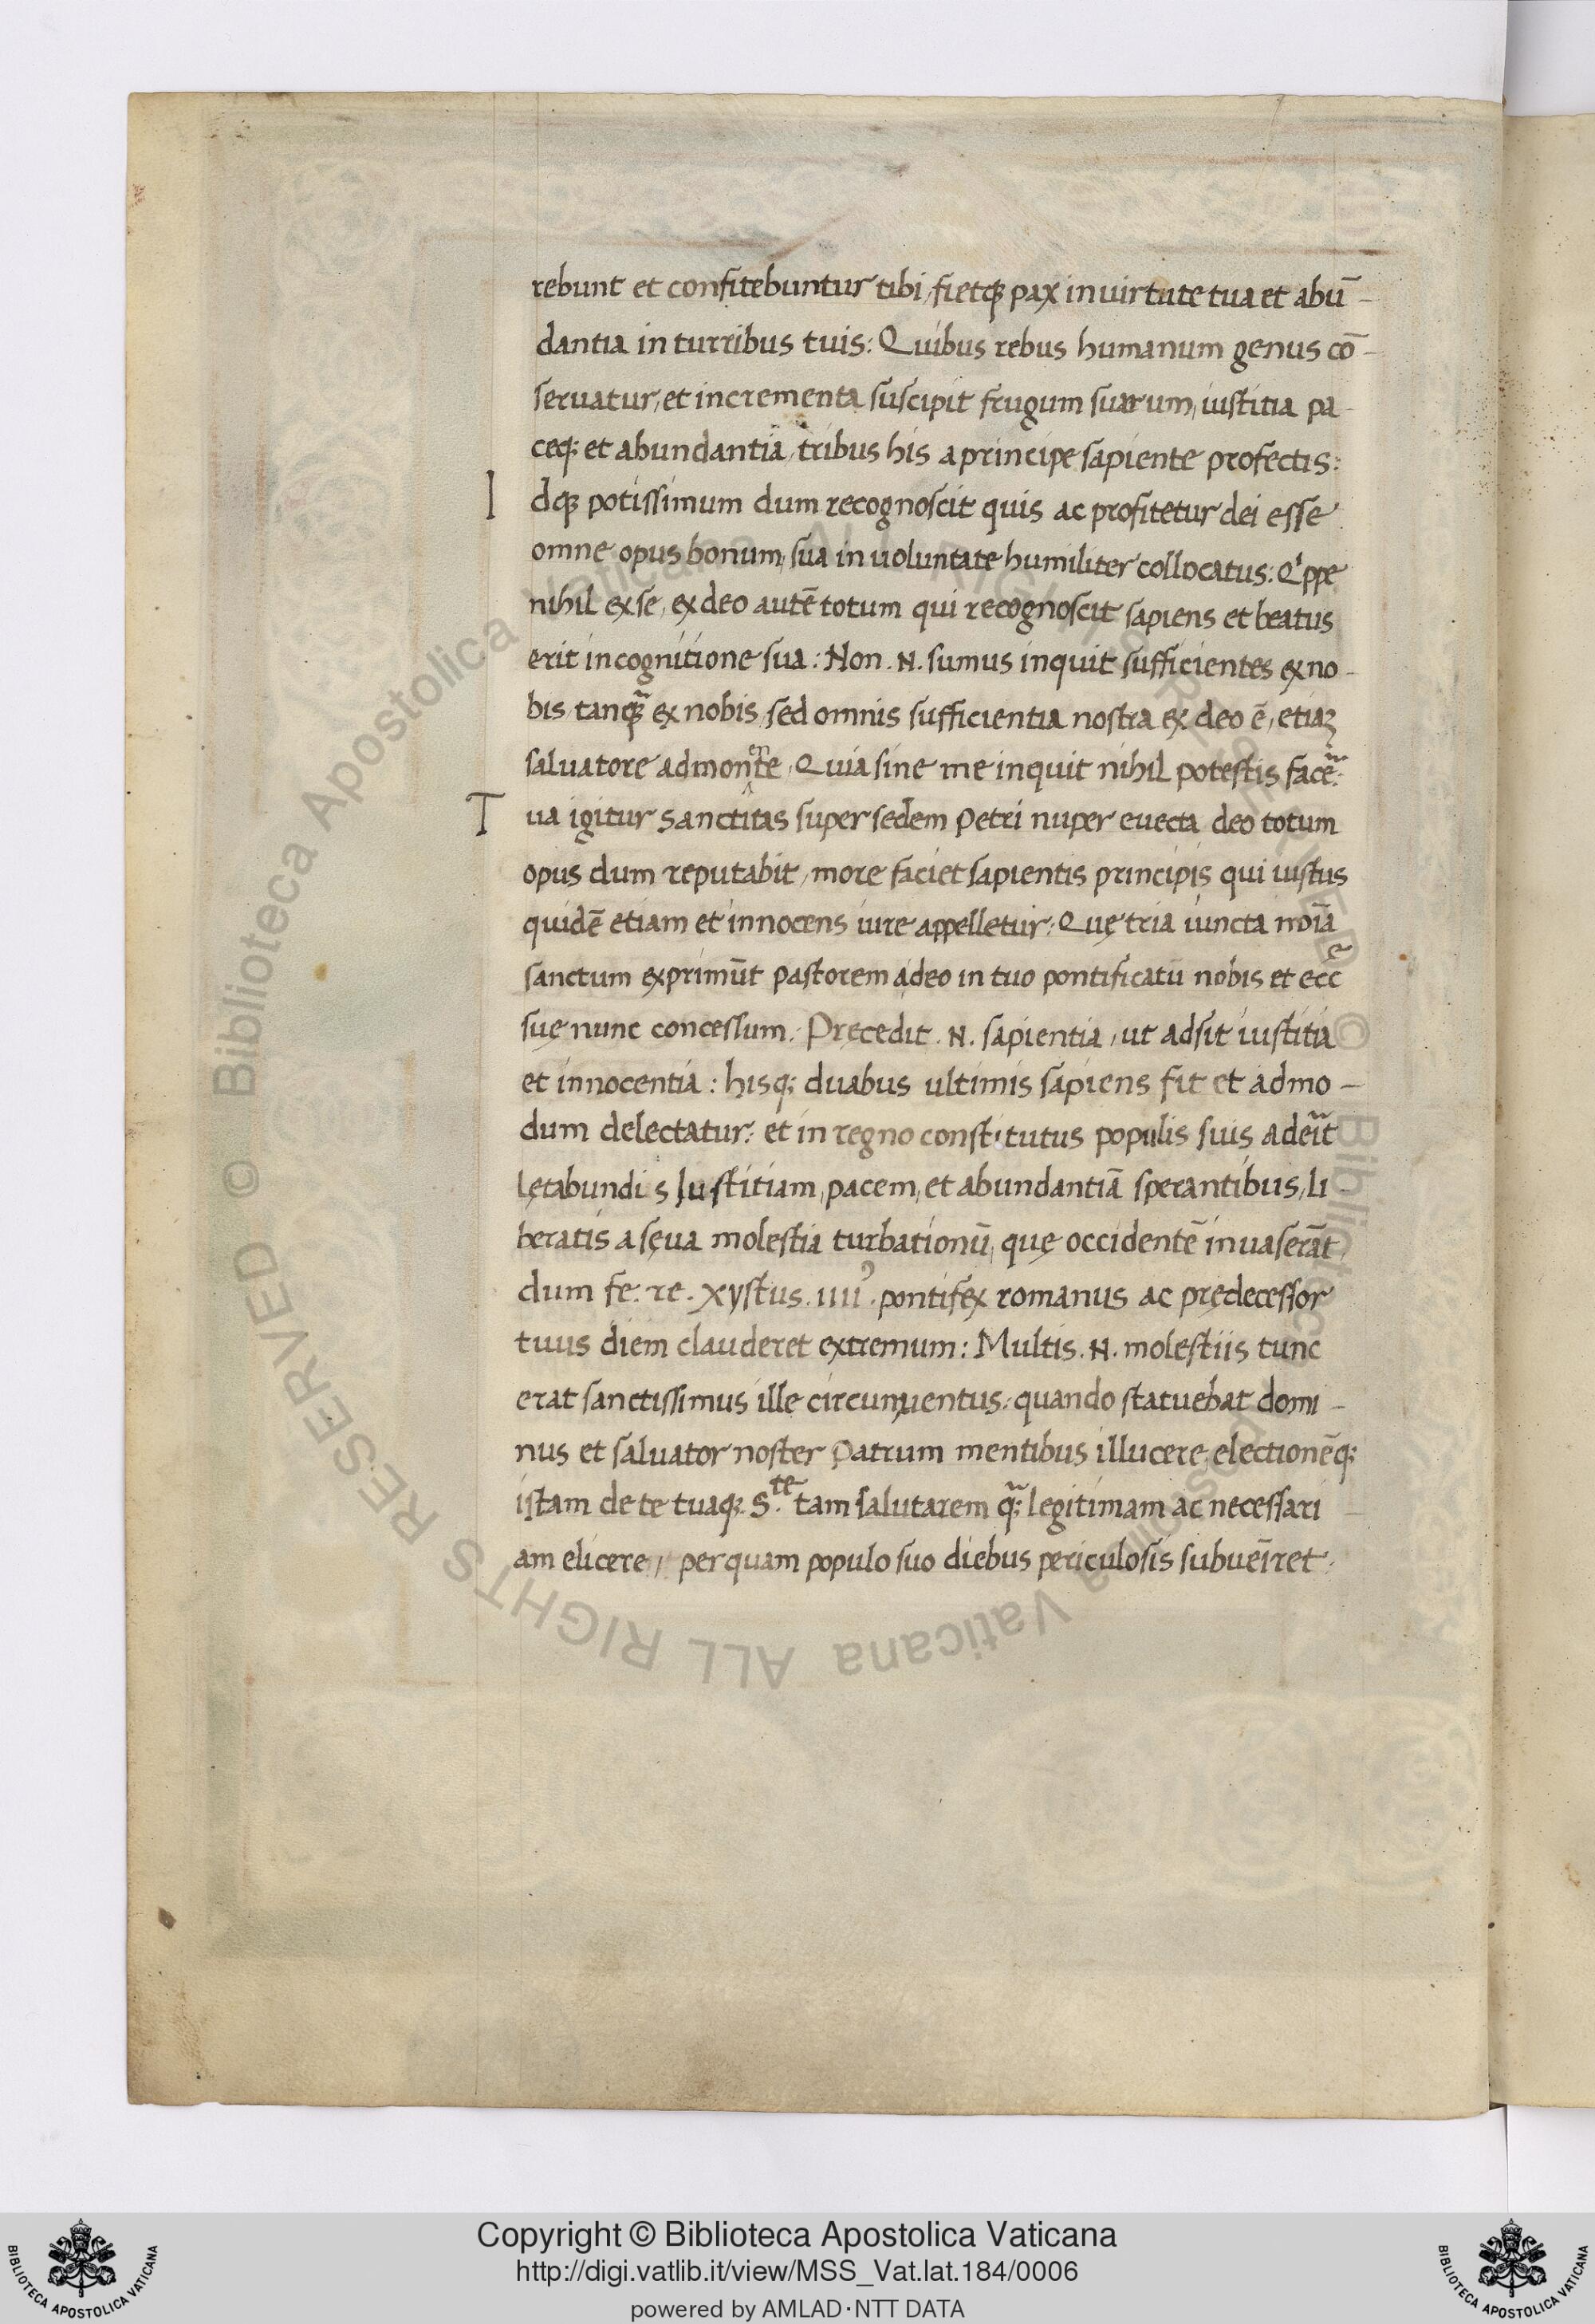 rebunt et confitebuntur tibi, fietq; pax in uirtute tua et abū-
dantia in turribus tuis: Quibus rebus humanum genus cō-
seruatur, et incrementa suscipit frugum suarum, iustitia pa-
ceq; et abundantia, tribus his a principe sapiente profectis:
Idq; potissimum dum recognoscit quis ac profitetur dei esse
omne opus bonum, sua in uoluntate humiliter collocatus: Qippe
nihil ex se, ex deo autē totum qui recognoscit sapiens et beatus
erit in cognitione sua: Non .N. sumus inquit sufficientes ex no-
bis tanq̃ ex nobis, sed omnis sufficientia nostra ex deo ē, etiaꝫ
saluatore admonente, Quia sine me inquit nihil potestis facẽ:
Tua igitur sanctitas super sedem Petri nuper euecta deo totum
opus dum reputabit, more faciet sapientis principis qui iustus
quidē etiam et innocens iure appelletur: Quę tria iuncta noīa
sanctum exprimūt pastorem a deo in tuo pontificatu nobis et eccᵉ
suę nunc concessum. Pręcedit .N. sapientia, ut adsit iustitia
et innocentia: hisq; duabus ultimis sapiens fit et admo-
dum delectatur: et in regno constitutus populis suis adeĩt
lętabundis Iustitiam, pacem, et abundantiā sperantibus, li-
beratis a sęua molestia turbationū, quę occidentē inuaserāt
dum fe. re. Xystus .IIIIꝰ. pontifex romanus ac prędecessor
tuus diem clauderet extremum: Multis .N. molestiis tunc
erat sanctissimus ille circumuentus: quando statuebat domi-
nus et saluator noster Patrum mentibus illucere, electionēq;
istam de te tuaq; S.ᵗᵉ tam salutarem q̃; legitimam ac necessari-
am elicere, per quam populo suo diebus periculosis subueīret.
© Biblioteca Apostolica Vaticana ALL RIGHTS RESERVED
Copyright © Biblioteca Apostolica Vaticana
http://digi.vatlib.it/view/MSS_Vat.lat.184/0006
powered by AMLAD·NTT DATA
BIBLIOTECA APOSTOLICA VATICANA
BIBLIOTECA APOSTOLICA VATICANA